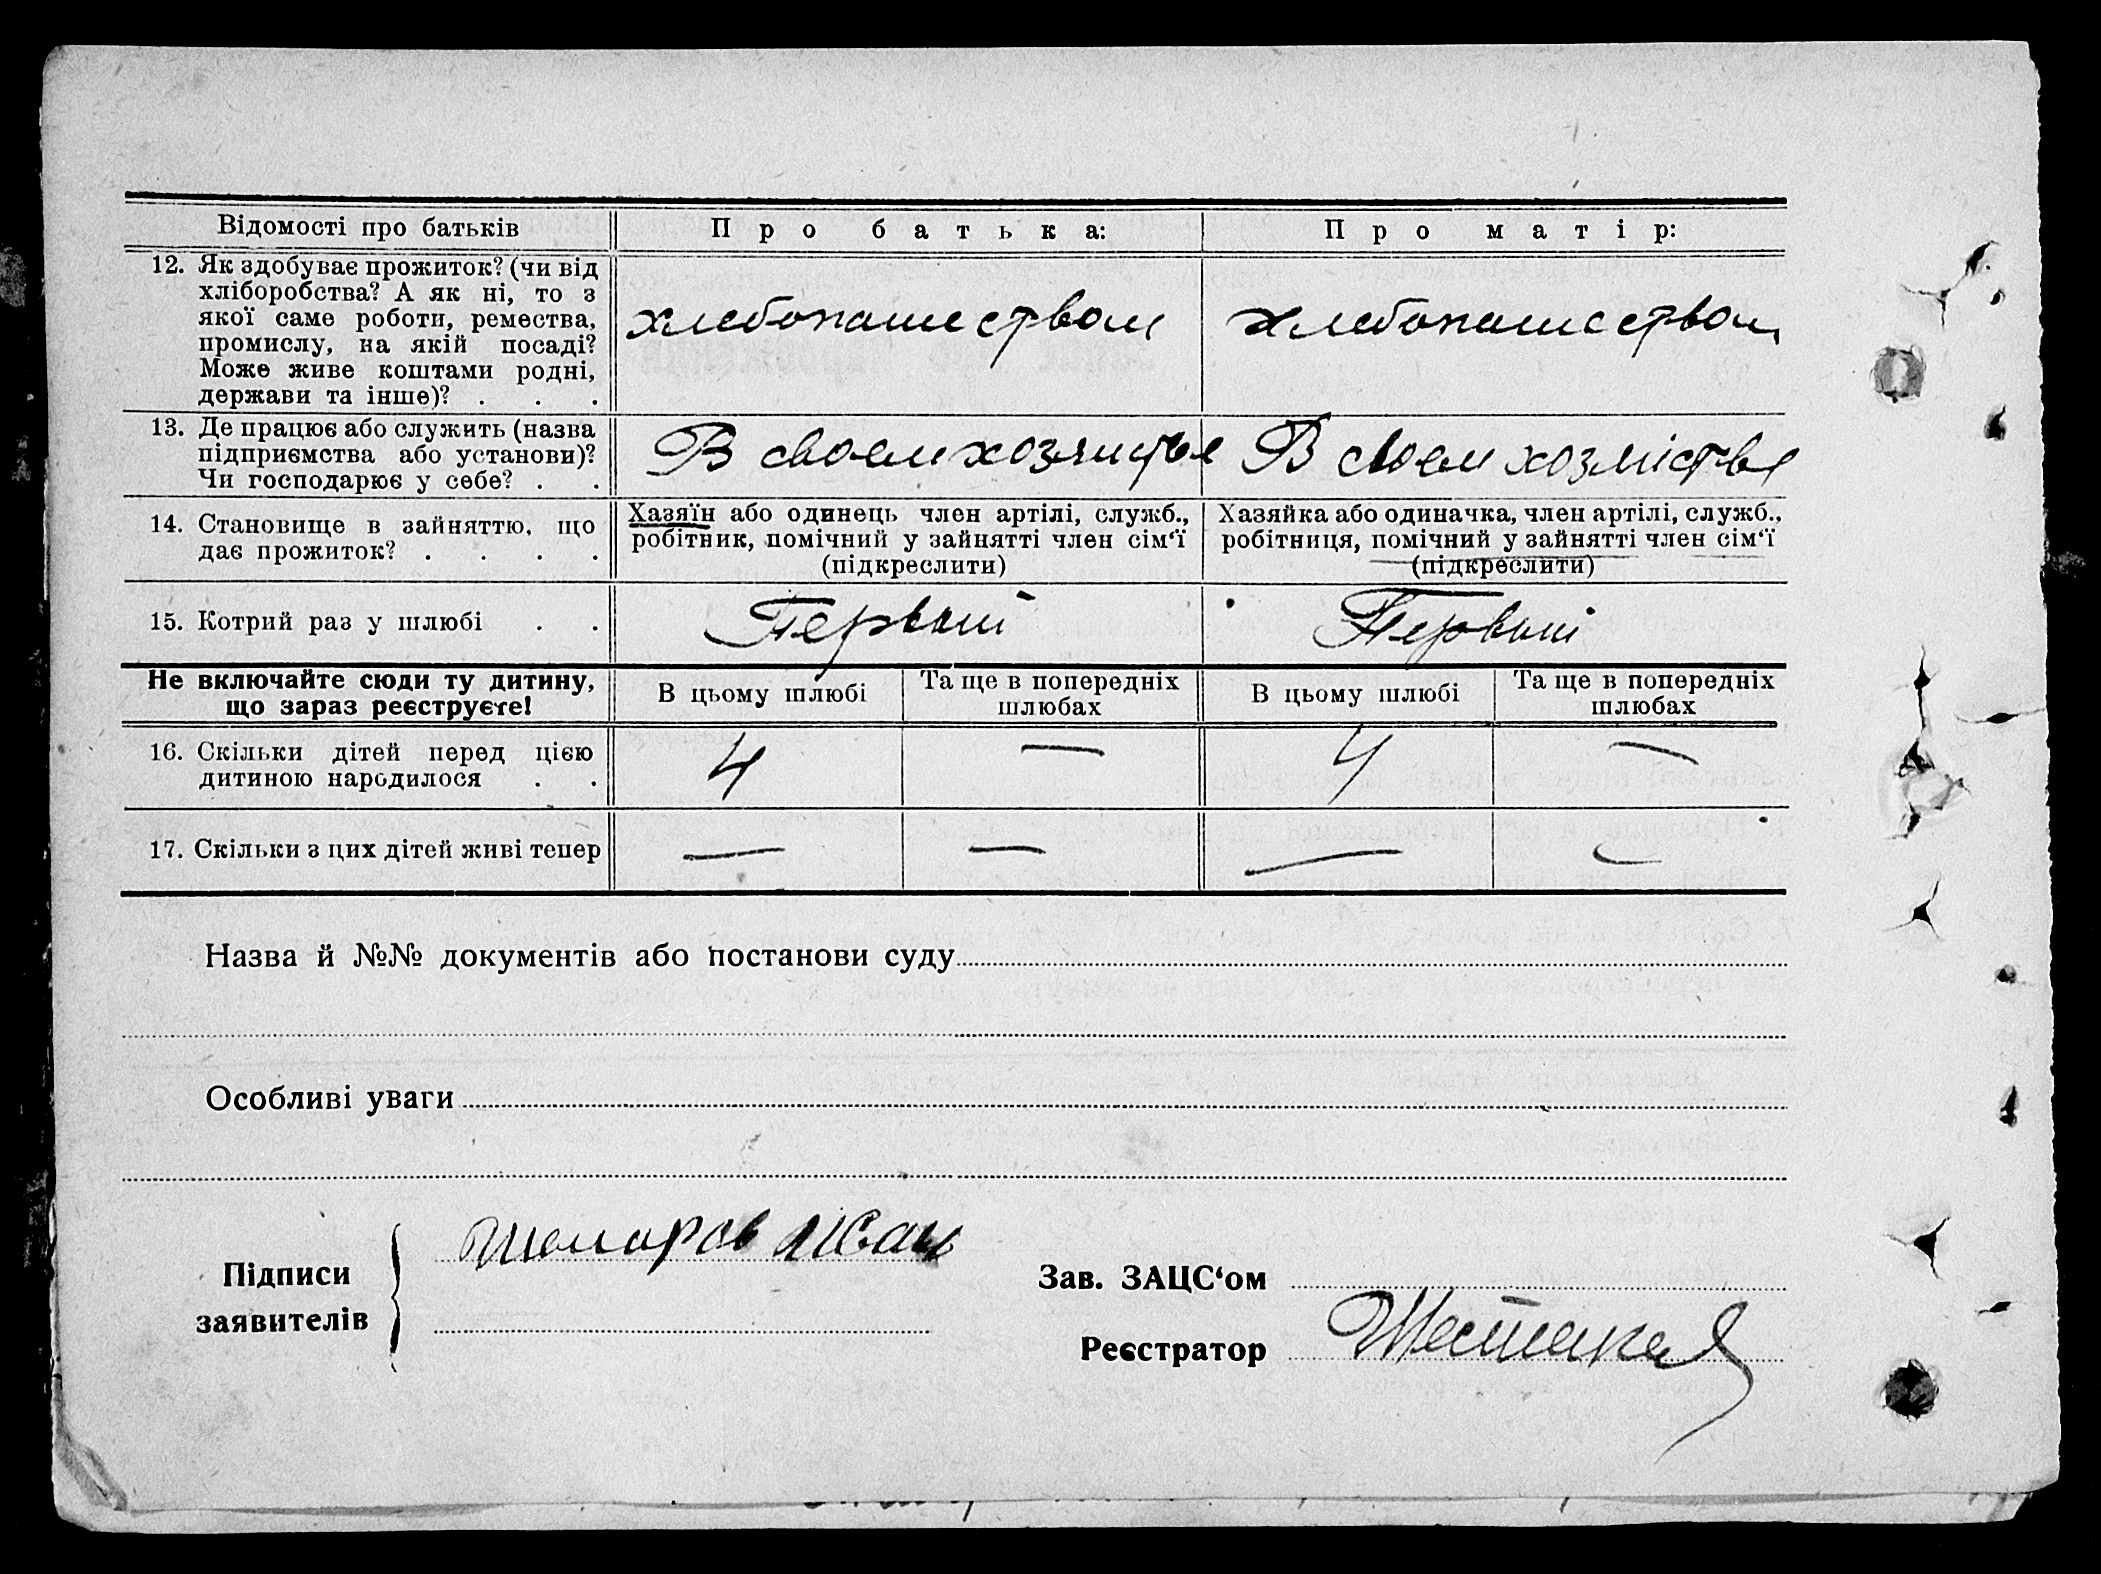 Відомості про батьків
Про батька:
Про матір:
12. Як здобуває прожиток? (чи від
хліборобства? А як ні, то з
якої саме роботи, ремества,
промислу, на якій посаді?
Може живе коштами родні,
держави та інше)? . . .
хлебопашеством
хлебопашеством
13. Де працює або служить (назва
підприємства або установи)?
Чи господарює у себе? . .
В своем хозяистве
В своем хозяістве
14. Становище в зайняттю, що
дає прожиток? . . . .
Хазяїн або одинець член артілі, служб.,
робітник, помічний у зайнятті член сім‘ї
(підкреслити)
Хазяйка або одиначка, член артілі, служб.,
робітниця, помічний у зайнятті член сім‘ї
(підкреслити)
15. Котрий раз у шлюбі . .
Первый
Первый
Не включайте сюди ту дитину,
що зараз реєструєте!
В цьому шлюбі
Та ще в попередніх
шлюбах
В цьому шлюбі
Та ще в попередніх
шлюбах
16. Скільки дітей перед цією
дитиною народилося . .
4
—
4
—
17. Скільки з цих дітей живі тепер
—
—
—
—
Назва й №№ документів або постанови суду
Особливі уваги
Підписи
заявителів
Иван
Зав. ЗАЦС‘ом
Реєстратор